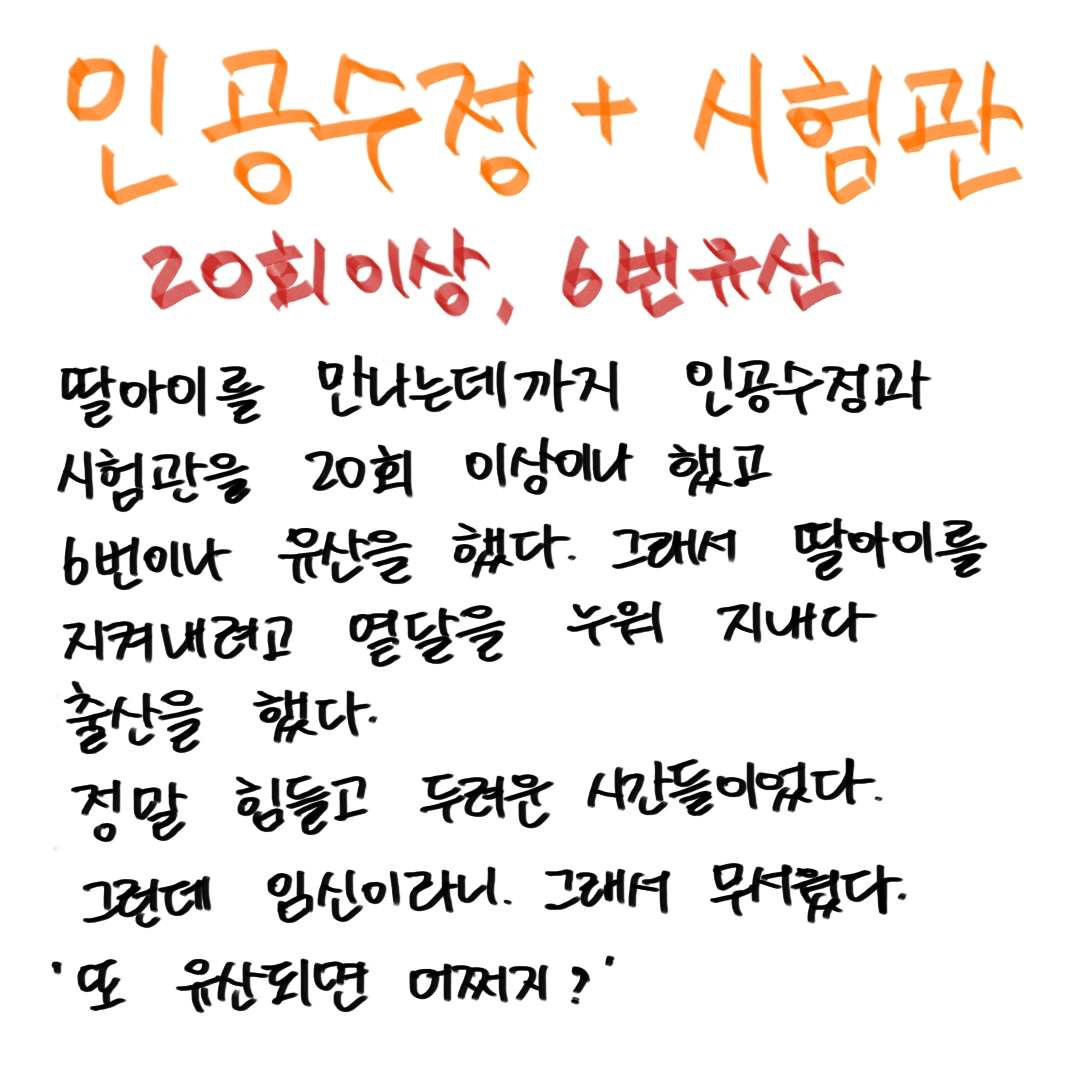 인공수정 + 시험관
20회이상, 6번유산
딸아이를 만나는데까지 인공수정과
시험관을 20회 이상이나 했고
6번이나 유산을 했다. 그래서 딸아이를
지켜내려고 열달을 누워 지내다
출산을 했다.
정말 힘들고 두려운 시간들이었다.
그런데 임신이라니. 그래서 무서웠다.
'또 유산되면 어쩌지?'